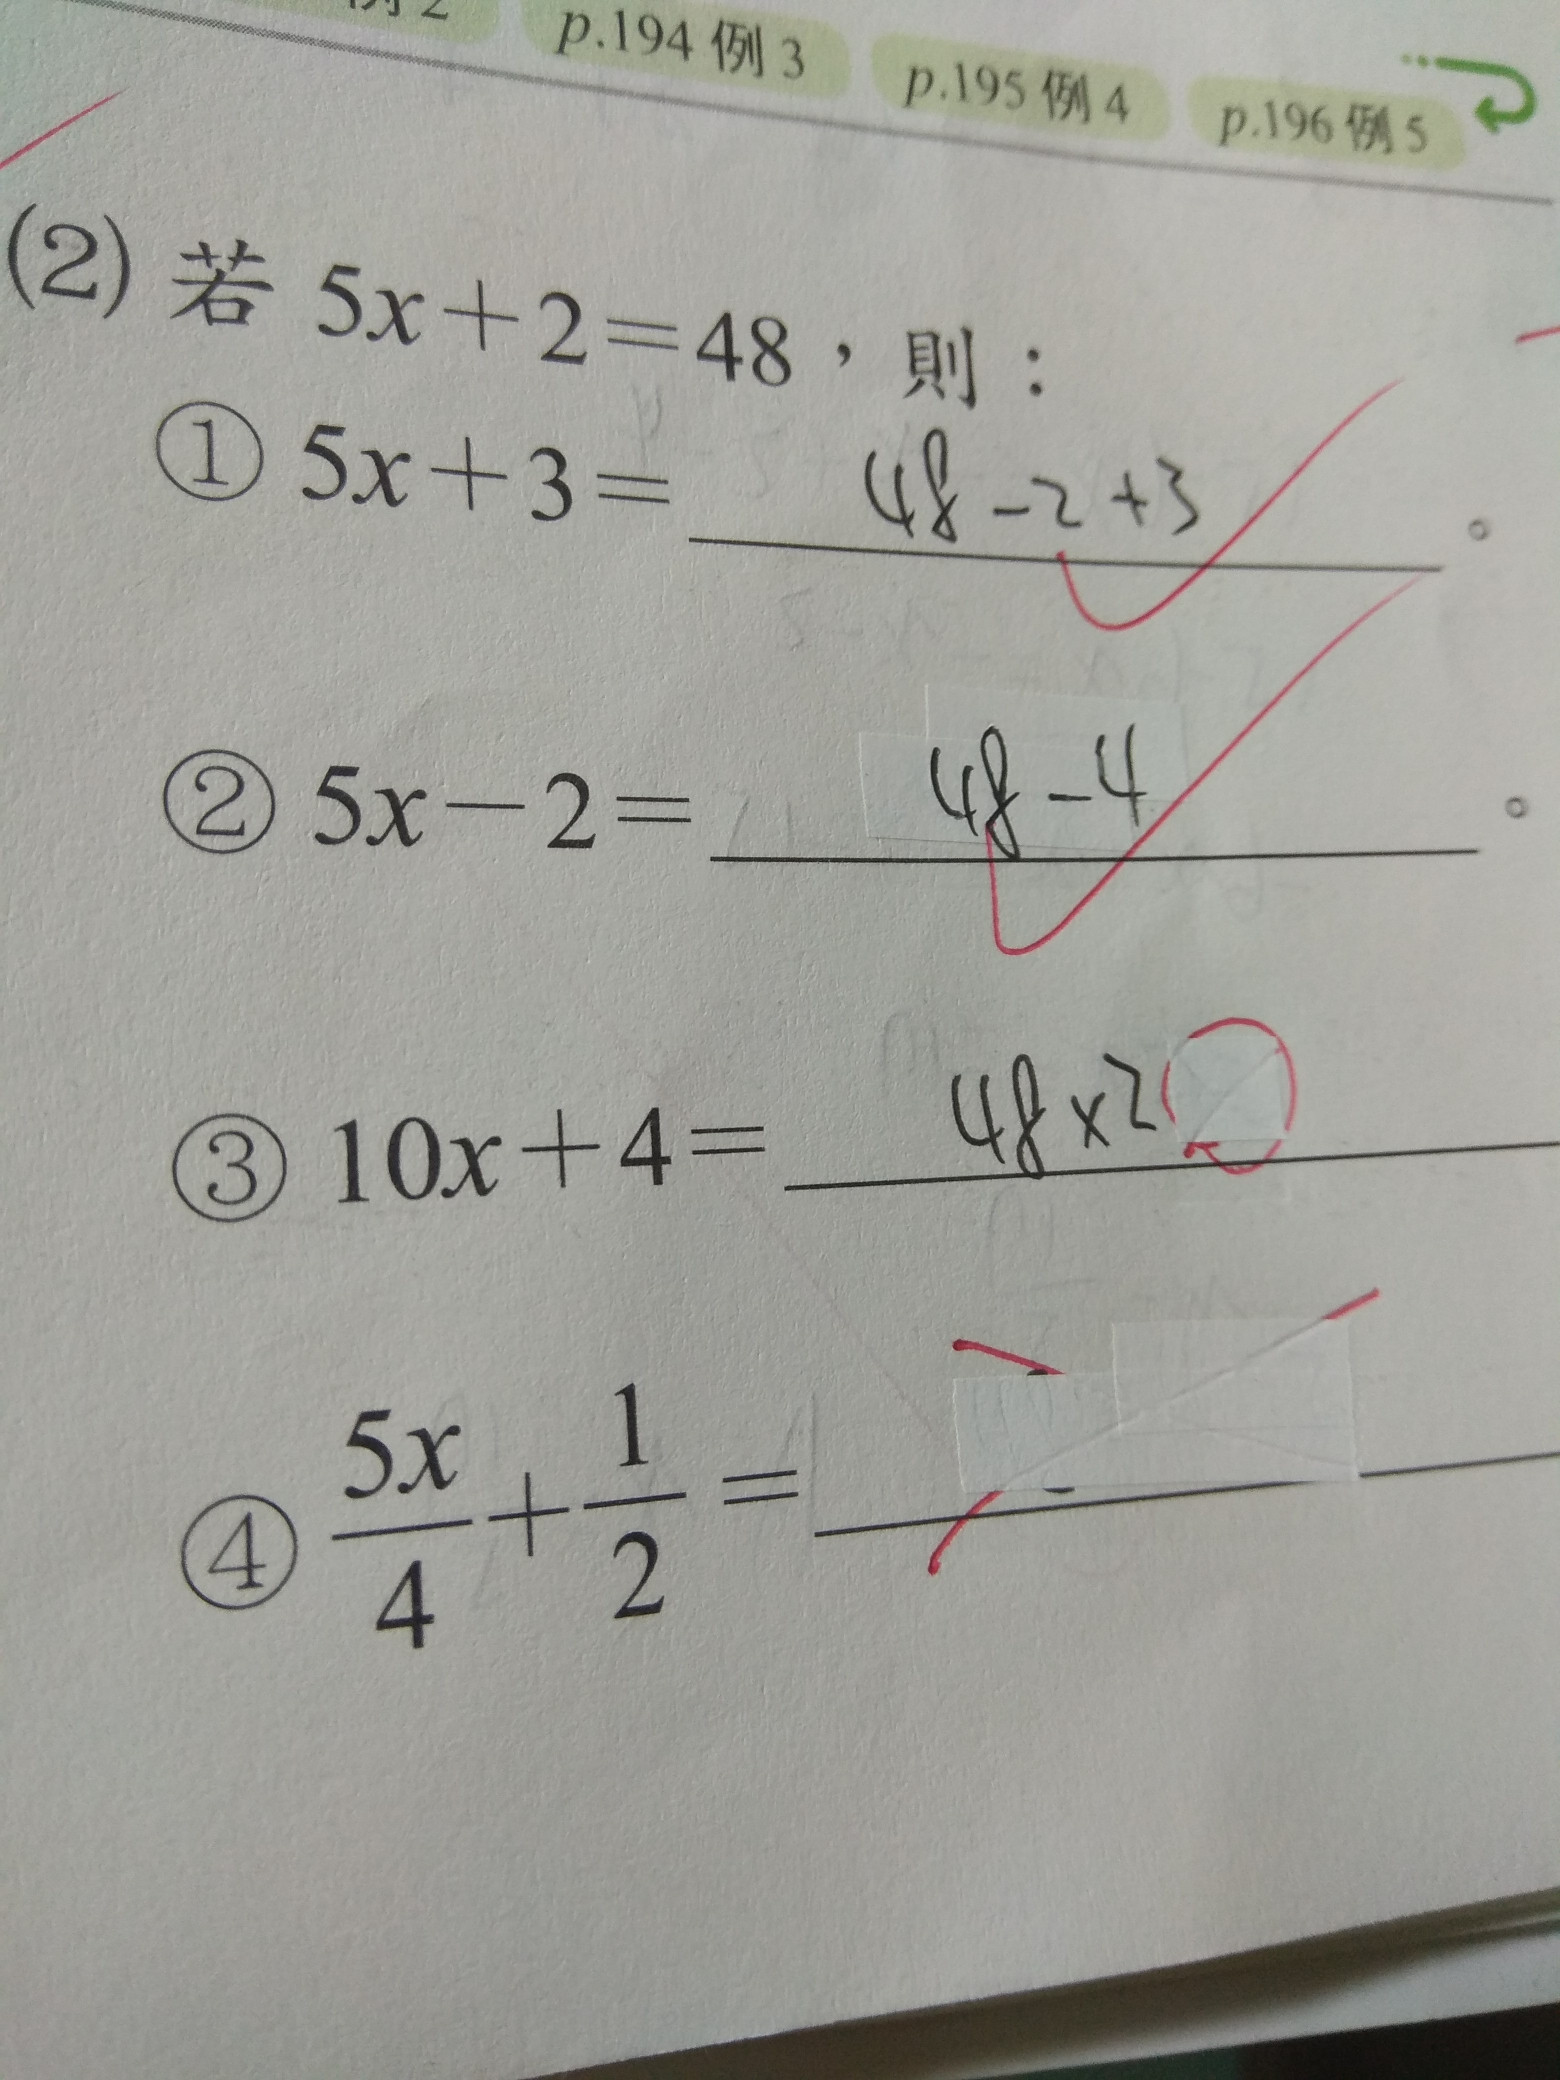 例 2 p.194 例 3 p.195 例 4 p.196 例 5
(2) 若 5x+2=48,則:
① 5x+3= 48-2+3 。
② 5x-2= 48-4 。
③ 10x+4= 48×2
④ 5x/4+1/2=